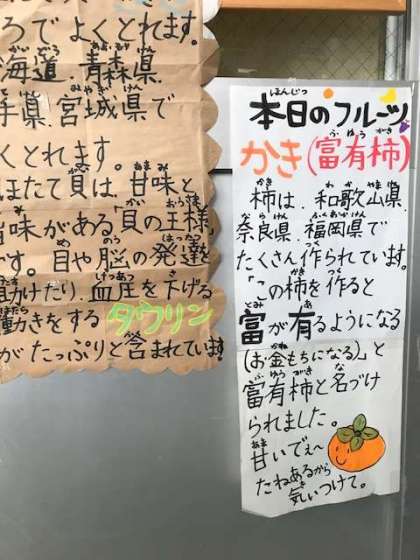 ろでよくとれます。
海道、青森県、
手県、宮城県で
くとれます。
ほたて貝は、甘味と
旨味がある「貝の王様」
です。目や脳の発達を
助けたり、血圧を下げる
働きをするタウリン
がたっぷりと含まれています
本日のフルーツ
かき(富有柿)
柿は、和歌山県、
奈良県、福岡県で
たくさん作られています。
「この柿を作ると
富が有るようになる
(お金もちになる)」と
富有柿と名づけ
られました。
甘いでぇ〜
たねあるから
気ぃつけて。